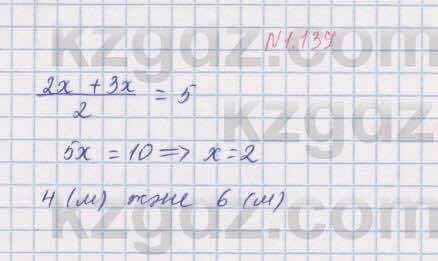 kzgdz.com
N1.139
(2x + 3x)/2 = 5
kzgdz.com
5x = 10 => x = 2
4 (м) және 6 (м)
kzgdz.com